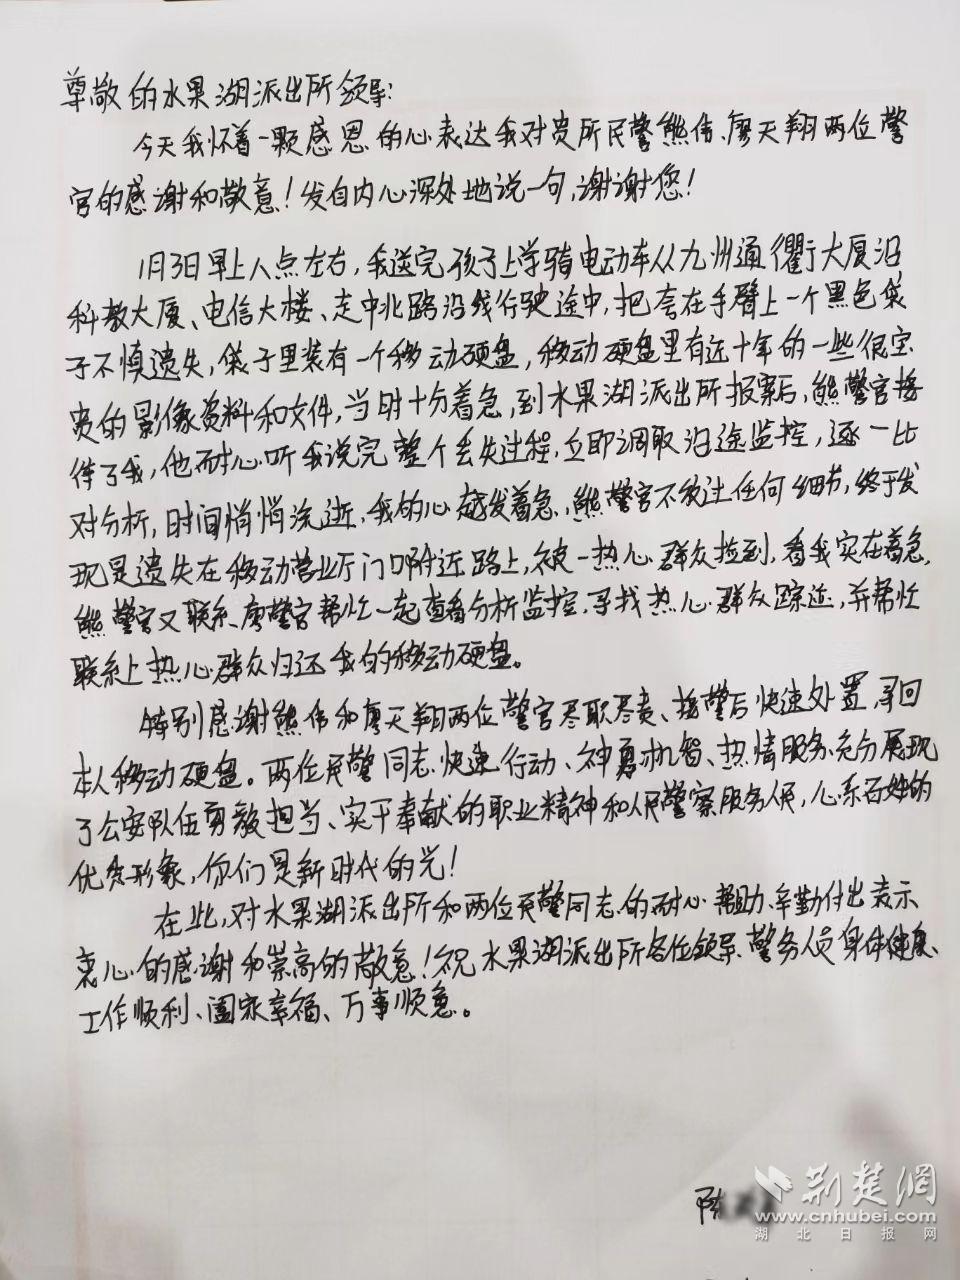 尊敬的水果湖派出所领导:
今天我怀着一颗感恩的心表达我对贵所民警熊伟、廖天翔两位警
官的感谢和敬意!发自内心深处地说一句,谢谢您!
1月3日早上八点左右,我送完孩子上学骑电动车从九州通衢大厦沿
科教大厦、电信大楼、走中北路沿线行驶途中,把套在手臂上一个黑色袋
子不慎遗失,袋子里装有一个移动硬盘,移动硬盘里有近十年的一些很宝
贵的影像资料和文件,当时十分着急,到水果湖派出所报案后,熊警官接
待了我,他耐心听我说完整个丢失过程,立即调取沿途监控,逐一比
对分析,时间悄悄流逝,我的心越发着急,熊警官不放过任何细节,终于发
现是遗失在移动营业厅门口附近路上,被一热心群众捡到,看我实在着急,
熊警官又联系廖警官帮忙一起查看分析监控,寻找热心群众踪迹,并帮忙
联系上热心群众归还我的移动硬盘。
特别感谢熊伟和廖天翔两位警官尽职尽责、接警后快速处置,寻回
本人移动硬盘。两位民警同志快速行动、神勇机智、热情服务充分展现
了公安队伍勇敢担当、实干奉献的职业精神和人民警察服务人民,心系百姓的
优良形象,你们是新时代的光!
在此,对水果湖派出所和两位民警同志的耐心帮助、辛勤付出表示
衷心的感谢和崇高的敬意!祝水果湖派出所各位领导、警务人员身体健康、
工作顺利、阖家幸福、万事顺意。
陈
荆楚网
www.cnhubei.com
湖北日报网